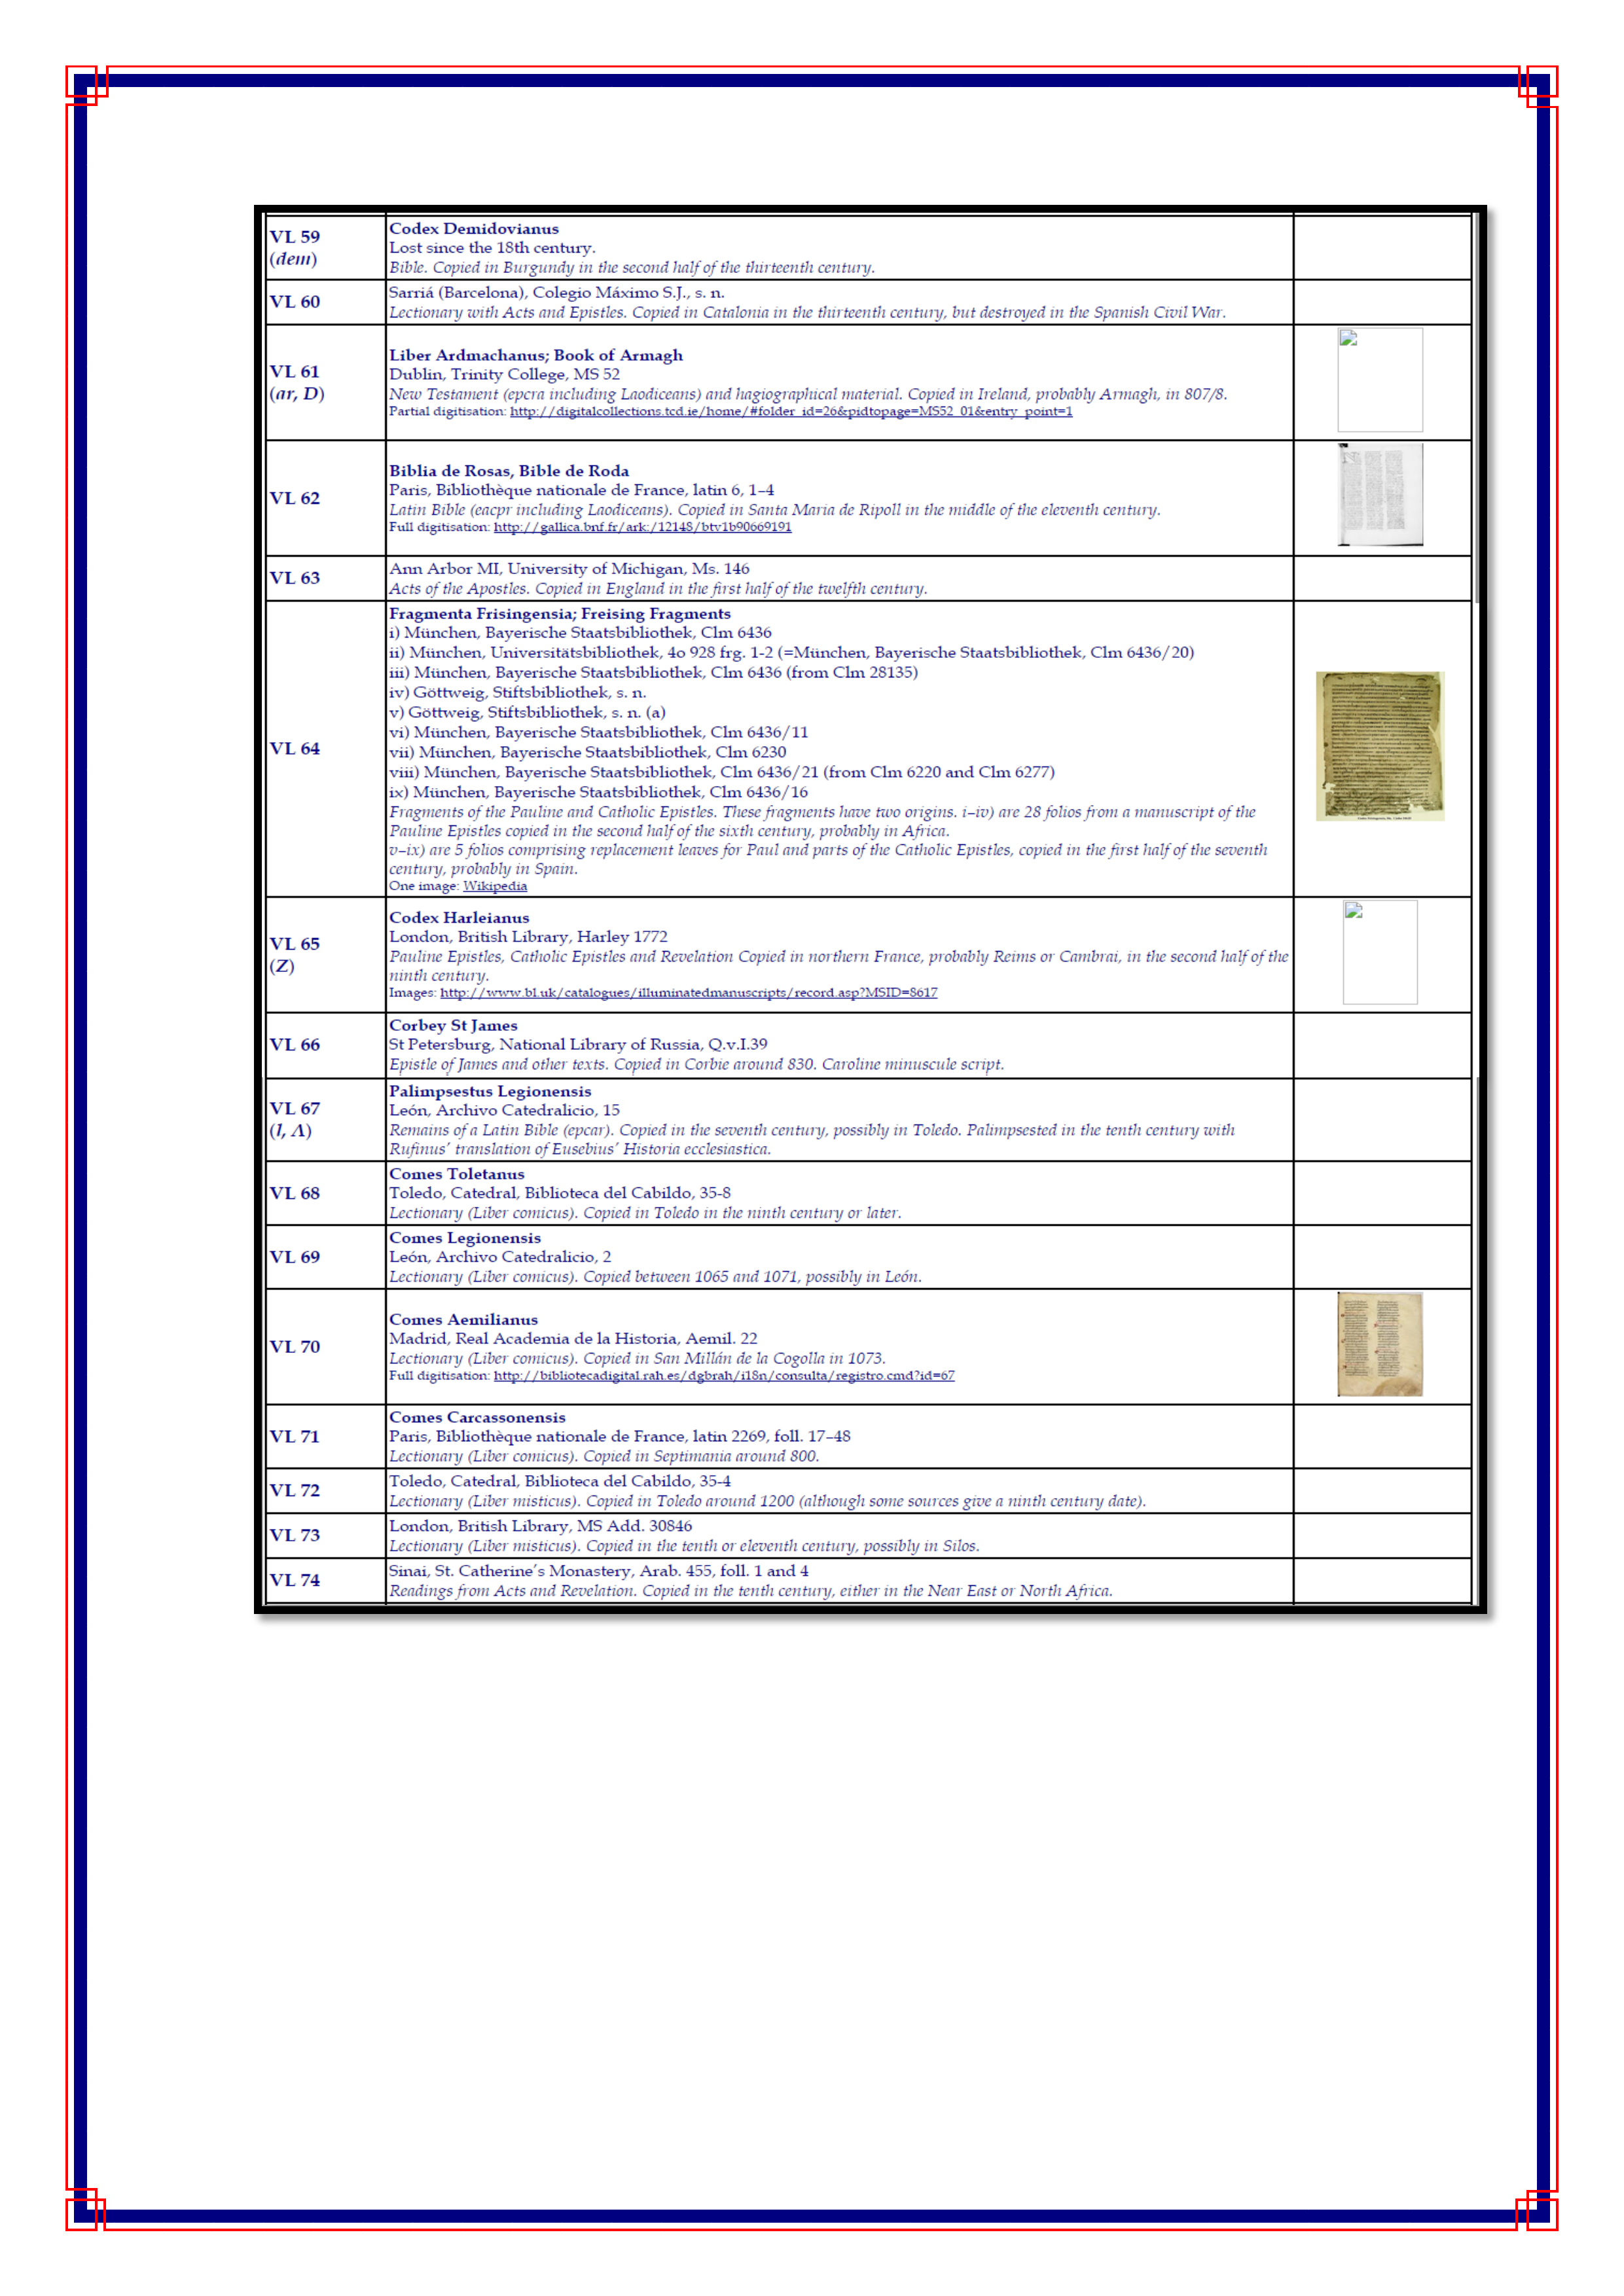 VL 59
(dem)
Codex Demidovianus
Lost since the 18th century.
Bible. Copied in Burgundy in the second half of the thirteenth century.
VL 60
Sarriá (Barcelona), Colegio Máximo S.J., s. n.
Lectionary with Acts and Epistles. Copied in Catalonia in the thirteenth century, but destroyed in the Spanish Civil War.
VL 61
(ar, D)
Liber Ardmachanus; Book of Armagh
Dublin, Trinity College, MS 52
New Testament (epcra including Laodiceans) and hagiographical material. Copied in Ireland, probably Armagh, in 807/8.
Partial digitisation: http://digitalcollections.tcd.ie/home/#folder_id=26&pidtopage=MS52_01&entry_point=1
VL 62
Biblia de Rosas, Bible de Roda
Paris, Bibliothèque nationale de France, latin 6, 1–4
Latin Bible (eacpr including Laodiceans). Copied in Santa Maria de Ripoll in the middle of the eleventh century.
Full digitisation: http://gallica.bnf.fr/ark:/12148/btv1b90669191
VL 63
Ann Arbor MI, University of Michigan, Ms. 146
Acts of the Apostles. Copied in England in the first half of the twelfth century.
VL 64
Fragmenta Frisingensia; Freising Fragments
i) München, Bayerische Staatsbibliothek, Clm 6436
ii) München, Universitätsbibliothek, 4o 928 frg. 1-2 (=München, Bayerische Staatsbibliothek, Clm 6436/20)
iii) München, Bayerische Staatsbibliothek, Clm 6436 (from Clm 28135)
iv) Göttweig, Stiftsbibliothek, s. n.
v) Göttweig, Stiftsbibliothek, s. n. (a)
vi) München, Bayerische Staatsbibliothek, Clm 6436/11
vii) München, Bayerische Staatsbibliothek, Clm 6230
viii) München, Bayerische Staatsbibliothek, Clm 6436/21 (from Clm 6220 and Clm 6277)
ix) München, Bayerische Staatsbibliothek, Clm 6436/16
Fragments of the Pauline and Catholic Epistles. These fragments have two origins. i–iv) are 28 folios from a manuscript of the
Pauline Epistles copied in the second half of the sixth century, probably in Africa.
v–ix) are 5 folios comprising replacement leaves for Paul and parts of the Catholic Epistles, copied in the first half of the seventh
century, probably in Spain.
One image: Wikipedia
VL 65
(Z)
Codex Harleianus
London, British Library, Harley 1772
Pauline Epistles, Catholic Epistles and Revelation Copied in northern France, probably Reims or Cambrai, in the second half of the
ninth century.
Images: http://www.bl.uk/catalogues/illuminatedmanuscripts/record.asp?MSID=8617
VL 66
Corbey St James
St Petersburg, National Library of Russia, Q.v.I.39
Epistle of James and other texts. Copied in Corbie around 830. Caroline minuscule script.
VL 67
(l, Λ)
Palimpsestus Legionensis
León, Archivo Catedralicio, 15
Remains of a Latin Bible (epcar). Copied in the seventh century, possibly in Toledo. Palimpsested in the tenth century with
Rufinus' translation of Eusebius' Historia ecclesiastica.
VL 68
Comes Toletanus
Toledo, Catedral, Biblioteca del Cabildo, 35-8
Lectionary (Liber comicus). Copied in Toledo in the ninth century or later.
VL 69
Comes Legionensis
León, Archivo Catedralicio, 2
Lectionary (Liber comicus). Copied between 1065 and 1071, possibly in León.
VL 70
Comes Aemilianus
Madrid, Real Academia de la Historia, Aemil. 22
Lectionary (Liber comicus). Copied in San Millán de la Cogolla in 1073.
Full digitisation: http://bibliotecadigital.rah.es/dgbrah/i18n/consulta/registro.cmd?id=67
VL 71
Comes Carcassonensis
Paris, Bibliothèque nationale de France, latin 2269, foll. 17–48
Lectionary (Liber comicus). Copied in Septimania around 800.
VL 72
Toledo, Catedral, Biblioteca del Cabildo, 35-4
Lectionary (Liber misticus). Copied in Toledo around 1200 (although some sources give a ninth century date).
VL 73
London, British Library, MS Add. 30846
Lectionary (Liber misticus). Copied in the tenth or eleventh century, possibly in Silos.
VL 74
Sinai, St. Catherine's Monastery, Arab. 455, foll. 1 and 4
Readings from Acts and Revelation. Copied in the tenth century, either in the Near East or North Africa.